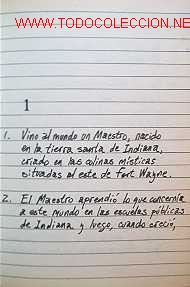 WWW.TODOCOLECCION.NET
1
1. Vino al mundo un Maestro, nacido
en la tierra santa de Indiana,
criado en las colinas místicas
situadas al este de Fort Wayne.
2. El Maestro aprendió lo que concernía
a este mundo en las escuelas públicas
de Indiana y luego, cuando creció,